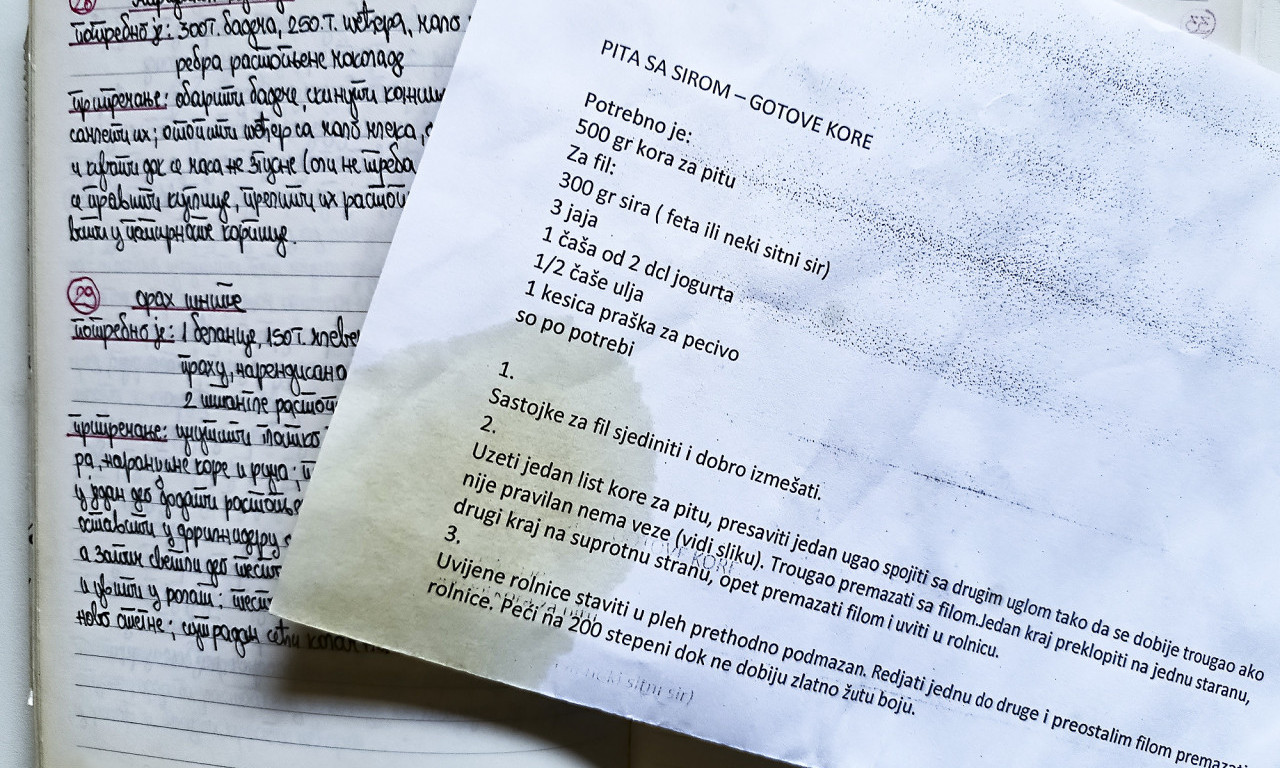 28
потребно је: 300г. бадема, 250.г. шећера, мало
ребра растопљене чоколаде
припремање: обарити бадеме, скинути кожицу
самлети их; отопити шећер са мало млека,
и кувати док се маса не згусне (али не треба
се правити куглице, прелити их
у папирнате корпице.
29 орах шните
потребно је: 1 беланце, 150г. млевених
ораху, нарендисано
2 штангле
припремање: умутити
коре и рума;
у један део додати
оставити у фрижидеру
а затим светли део
и увити у ролат;
ново стегне; сутрадан сећи
PITA SA SIROM – GOTOVE KORE
Potrebno je:
500 gr kora za pitu
Za fil:
300 gr sira ( feta ili neki sitni sir)
3 jaja
1 čaša od 2 dcl jogurta
1/2 čaše ulja
1 kesica praška za pecivo
so po potrebi
1.
Sastojke za fil sjediniti i dobro izmešati.
2.
Uzeti jedan list kore za pitu, presaviti jedan ugao spojiti sa drugim uglom tako da se dobije trougao ako
nije pravilan nema veze (vidi sliku). Trougao premazati sa filom.Jedan kraj preklopiti na jednu staranu,
drugi kraj na suprotnu stranu, opet premazati filom i uviti u rolnicu.
3.
Uvijene rolnice staviti u pleh prethodno podmazan. Redjati jednu do druge i preostalim filom premazati
rolnice. Peći na 200 stepeni dok ne dobiju zlatno žutu boju.
neki sitni sir)